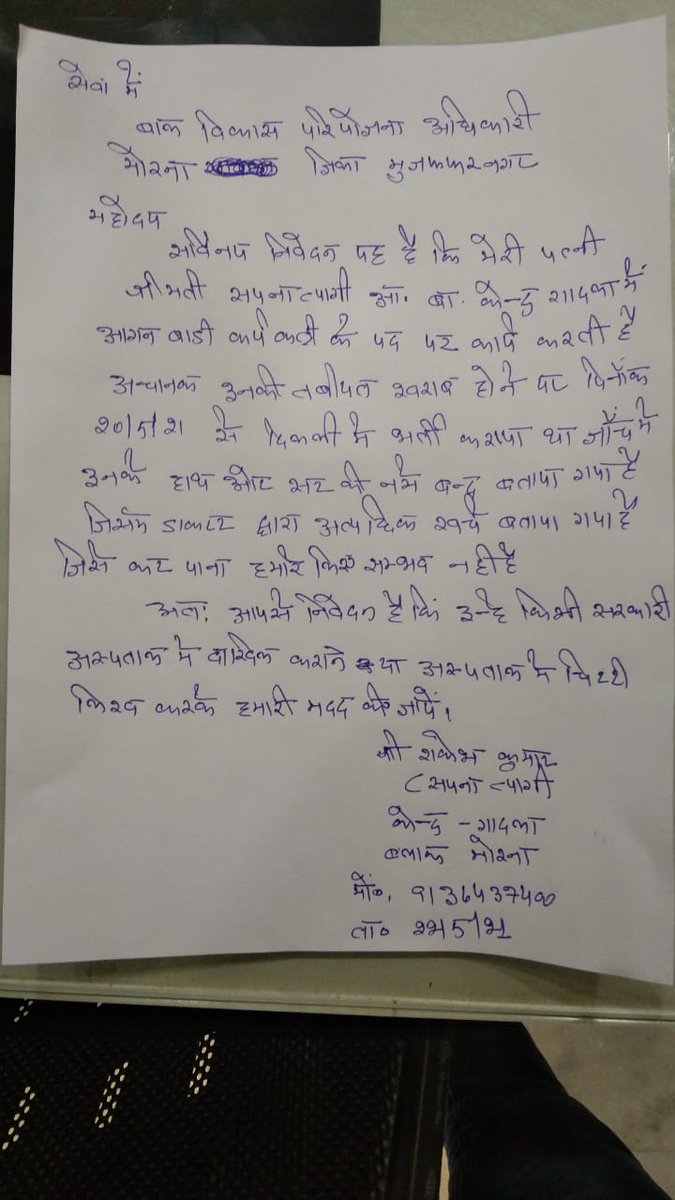 सेवा में
बाल विकास परियोजना अधिकारी
मोरना जिला मुजफ्फरनगर
महोदय
सविनय निवेदन यह है कि मेरी पत्नी
श्रीमती सपना त्यागी आ. बा. केन्द्र गादला में
आगन बाडी कार्यकत्री के पद पर कार्य करती है
अचानक उनकी तबीयत खराब होने पर दिनाँक
20/5/21 से दिल्ली मे भर्ती कराया था जाँच मे
उनके हाथ और सर की नसे बन्द बताया गया है
जिसमे डाक्टर द्वारा अत्यधिक खर्च बताया गया है
जिसे कर पाना हमारे लिए सम्भव नही है
अतः आपसे निवेदन है कि उन्हे किसी सरकारी
अस्पताल मे दाखिल कराने या अस्पताल मे चिट्टी
लिख करके हमारी मदद की जायें।
श्री राकेश कुमार
(सपना त्यागी
केन्द्र - गादला
बलाक मोरना
मों०. 9136437400
ता०